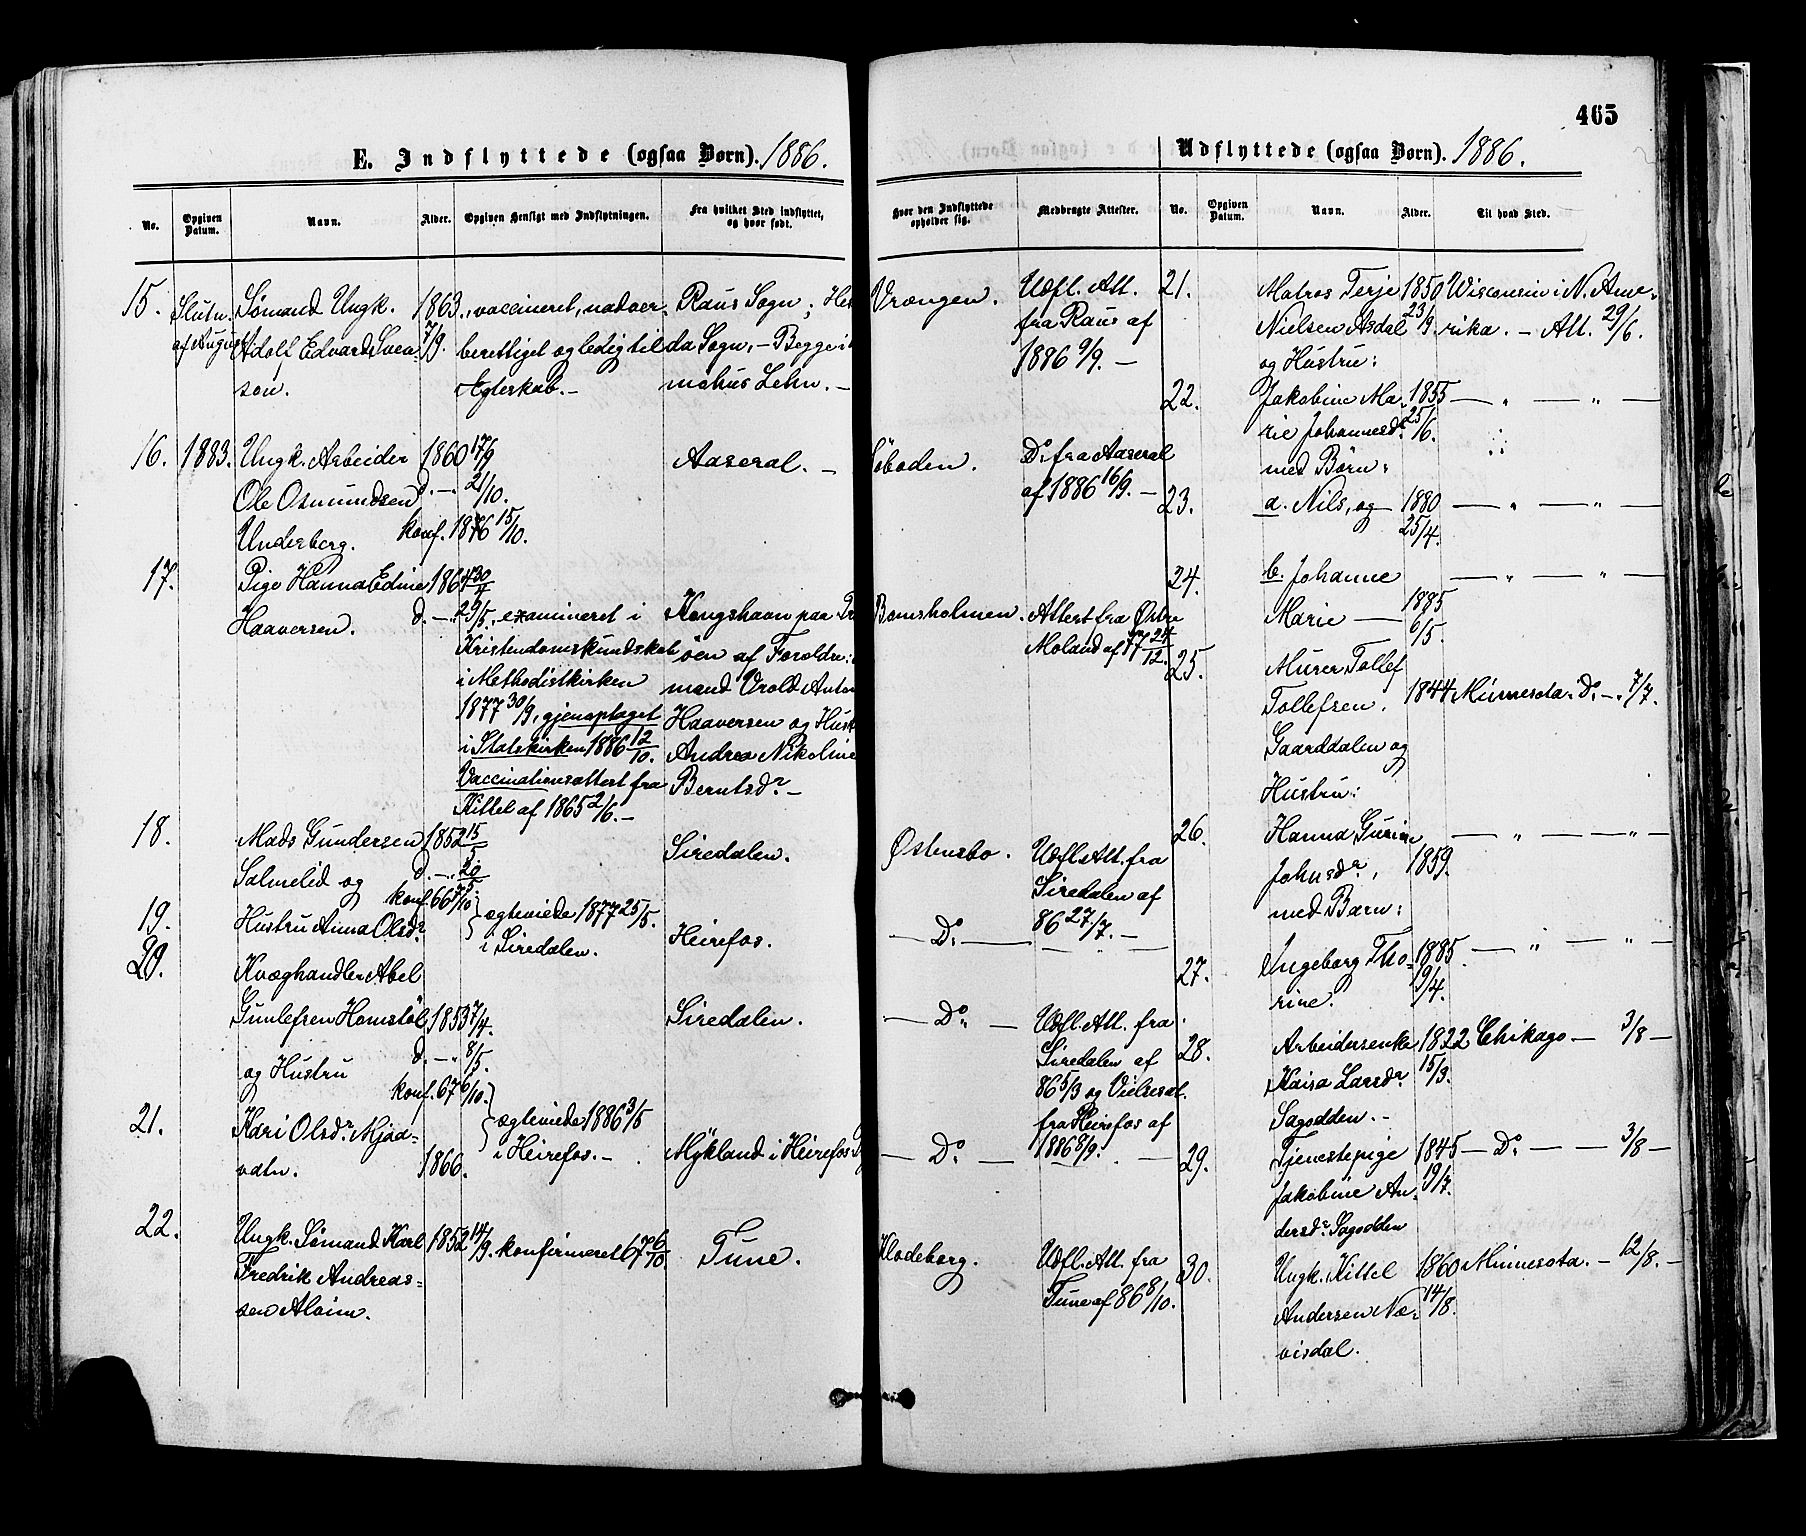 465
E. Indflyttede (ogsaa Børn). 1886.
No.
Opgiven Datum.
Navn.
Alder.
Opgiven Hensigt med Indflytningen.
Fra hvilket Sted indflyttet, og hvor født.
Hvor den Indflyttede opholder sig.
Medbragte Attester.
15. Slutn. Sømand Ungk. 1863. vaccineret, nadver- Raus Sogn; Vrængen. Udfl. Att.
af August Adolf Edvard Sven- 7/9. berettiget og ledig til da Sogn, - Begge i fra Raus af
sen. Ægteskab. - Lehn. - 1886 9/9. -
16. 1883. Ungk. Arbeider 1860 17/9 Aaseral. - D: fra Aaseral
Ole Osmundsen d. -. 21/10. af 1886 16/9. -
Underberg. konf. 1876 15/10.
17. Pige Hanna Edine 1864 30/4
Haaversen. d. -. 29/5. examineret i Kongshavn paa Bomsholmen. Attest fra Østre
Kristendomskundskab øen af Forældre: Moland af 77 24/12.
i Methodistkirken mand Vrold Anton
1877 30/9, gjenoptaget Haaversen og Hust
i Statskirken 1886 12/10. Andrea Nikoline
Vaccinationsattest fra Berntsdr. -
Kittel af 1865 2/6. -
18. Mads Gundersen 1852 15/3 Siredalen. Østensbo. Udfl. Att. fra
Salmelid og d. -. 20/5. Siredalen af
konf. 66 7/10. 86 27/7. -
19. Hustru Anna Olsdr. ægteviede 1877 25/5. Heirefos. - D: -
i Siredalen.
20. Kvæghandler Abel
Gunlefsen Homstøl 1853 7/4. Siredalen. - D: - Udfl. Att. fra
og Hustru d. -. 8/5. Siredalen af
konf. 67 6/10. 86 5/3 og Vielsesat.
21. Kari Olsdr. Mjaa- ægteviede 1886 3/5 fra Heirefos af
vatn. 1866. i Heirefos. - Mykland i Heirefos - D: - 1886 8/9. -
22. Ungk. Sømand Karl 1852 14/9. konfirmeret 67 6/10 Tune. Kladeberg. Udfl. Att. fra
Fredrik Andreas- Tune af 86 8/10.
sen
Udflyttede (ogsaa Børn). 1886.
No.
Opgiven Datum.
Navn.
Alder.
Til hvad Sted.
21. Matros Terje 1850 Wisconsin i N. Ame-
Nielsen Asdal 23/9. rika. - Att. 29/6.
og Hustru:
22. Jakobine Ma- 1855 - " - " -
rie Johannesdr. 25/6.
med Børn:
23. a. Nils, og 1880 - " - " -
25/4.
24. b. Johanne - " - " -
Marie - 1885
6/5.
25. Murer Tollef
Tollefsen. 1844 Minnesota. D: -. 7/7.
Gaarddalen og
Hustru:
26. Hanna Gurine - " - " -
Johnsdr., 1859.
med Barn:
27. Ingeborg Tho- 1885. - " - " -
rine. 9/4.
28. Arbeidersenke 1822 Chikago - 3/8 -
Kaisa Larsdr. 15/3.
Sagodden. -
29. Tjenestepige 1845 - D: - 3/8 -
Jakobine An- 19/7.
dersdr. Sagodden
30. Ungk. Kittel 1860 Minnesota. - 12/8. -
Andersen Næ- 14/8.
visdal.